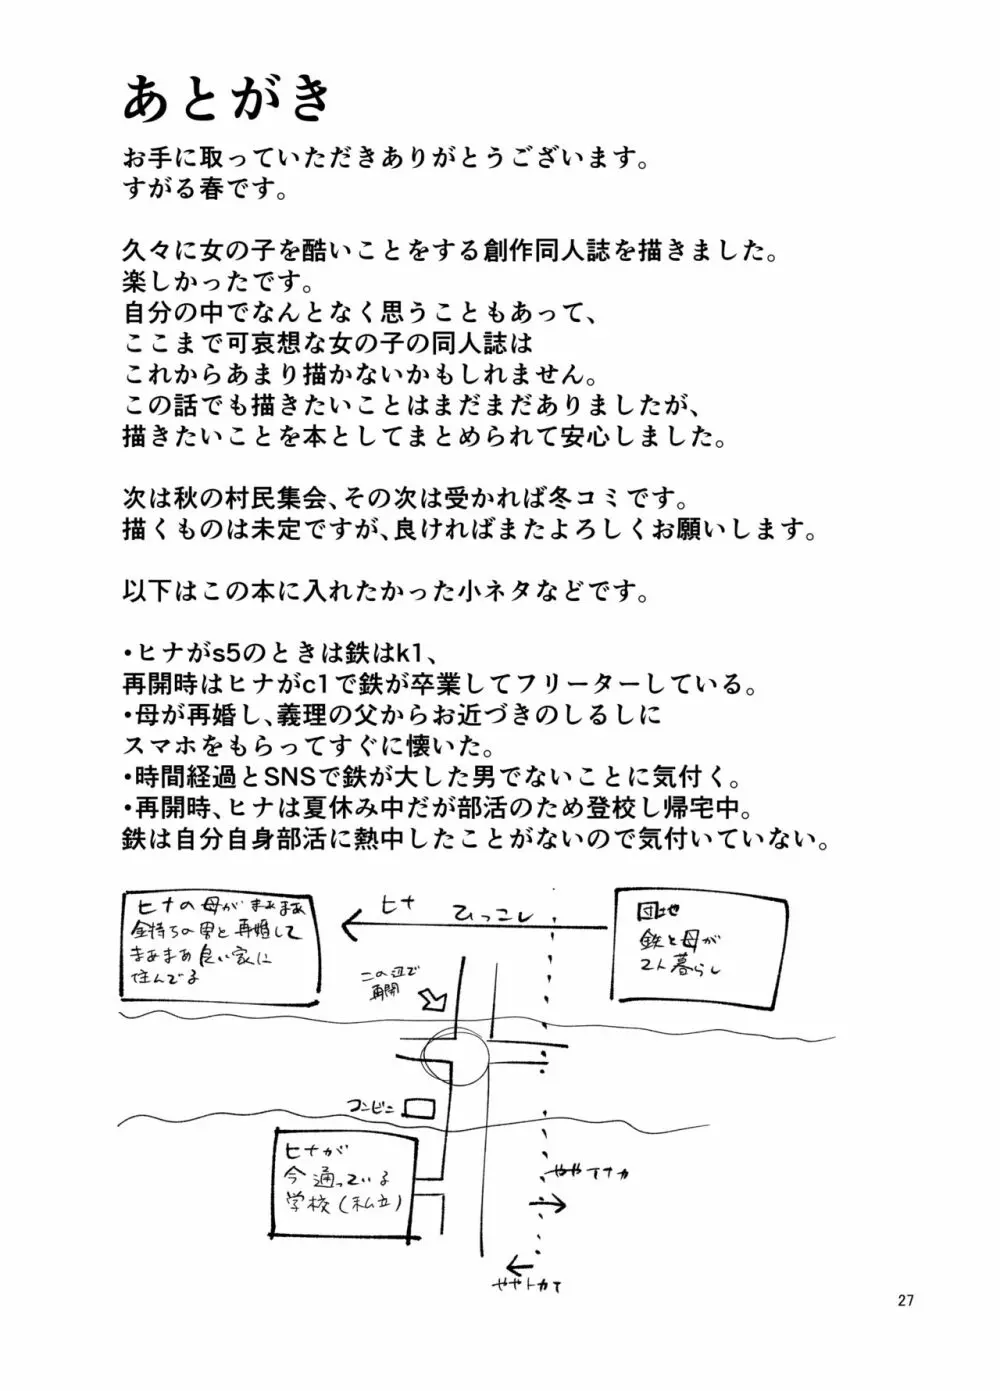 あとがき
お手に取っていただきありがとうございます。
すがる春です。
久々に女の子を酷いことをする創作同人誌を描きました。
楽しかったです。
自分の中でなんとなく思うこともあって、
ここまで可哀想な女の子の同人誌は
これからあまり描かないかもしれません。
この話でも描きたいことはまだまだありましたが、
描きたいことを本としてまとめられて安心しました。
次は秋の村民集会、その次は受かれば冬コミです。
描くものは未定ですが、良ければまたよろしくお願いします。
以下はこの本に入れたかった小ネタなどです。
・ヒナがs5のときは鉄はk1、
再開時はヒナがc1で鉄が卒業してフリーターしている。
・母が再婚し、義理の父からお近づきのしるしに
スマホをもらってすぐに懐いた。
・時間経過とSNSで鉄が大した男でないことに気付く。
・再開時、ヒナは夏休み中だが部活のため登校し帰宅中。
鉄は自分自身部活に熱中したことがないので気付いていない。
ヒナの母がまあまあ
金持ちの男と再婚して
まあまあ良い家に
住んでる
ヒナ
ひっこし
団地
鉄と母が
2人暮らし
この辺で
再開
コンビニ
ヒナが
今通っている
学校(私立)
ややイナカ
ややトカイ
27